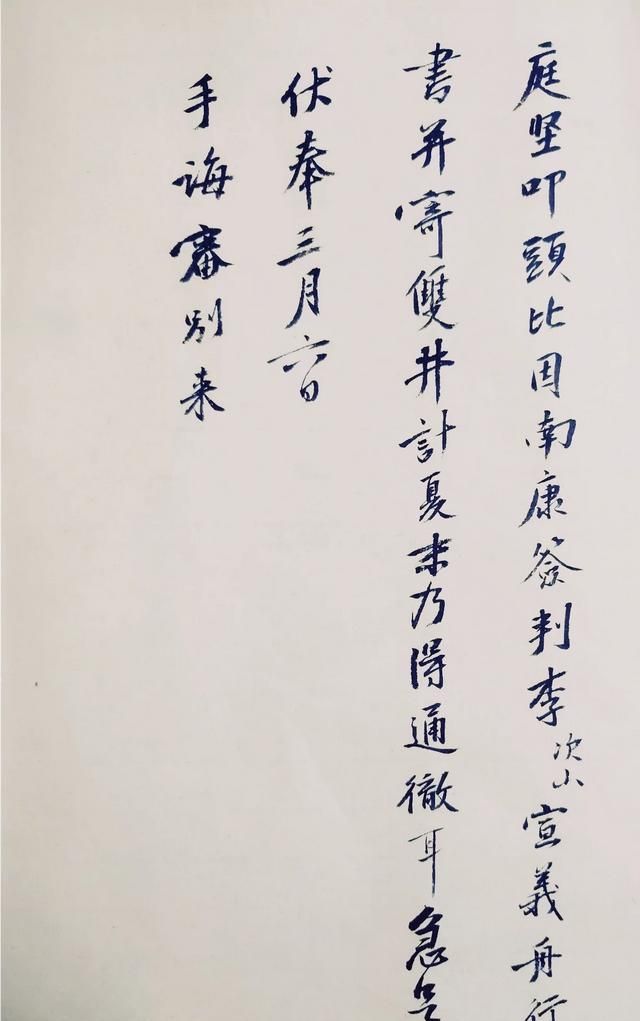 庭坚叩頭比因南康簽判李次山宣義舟行
書并寄雙井計夏末乃得通徹耳急足
伏奉三月六日
手誨審別来